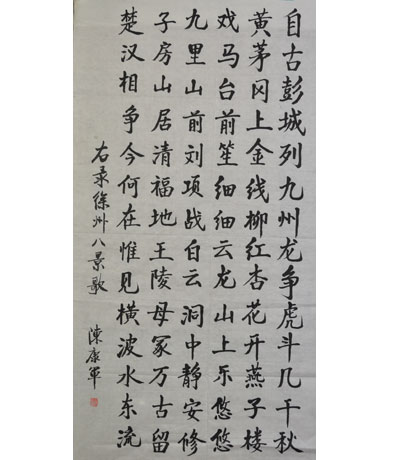 自古彭城列九州龙争虎斗几千秋
黄茅冈上金线柳红杏花开燕子楼
戏马台前笙细细云龙山上乐悠悠
九里山前刘项战白云洞中静安修
子房山居清福地王陵母冢万古留
楚汉相争今何在惟见横波水东流
右录徐州八景歌
陈康军